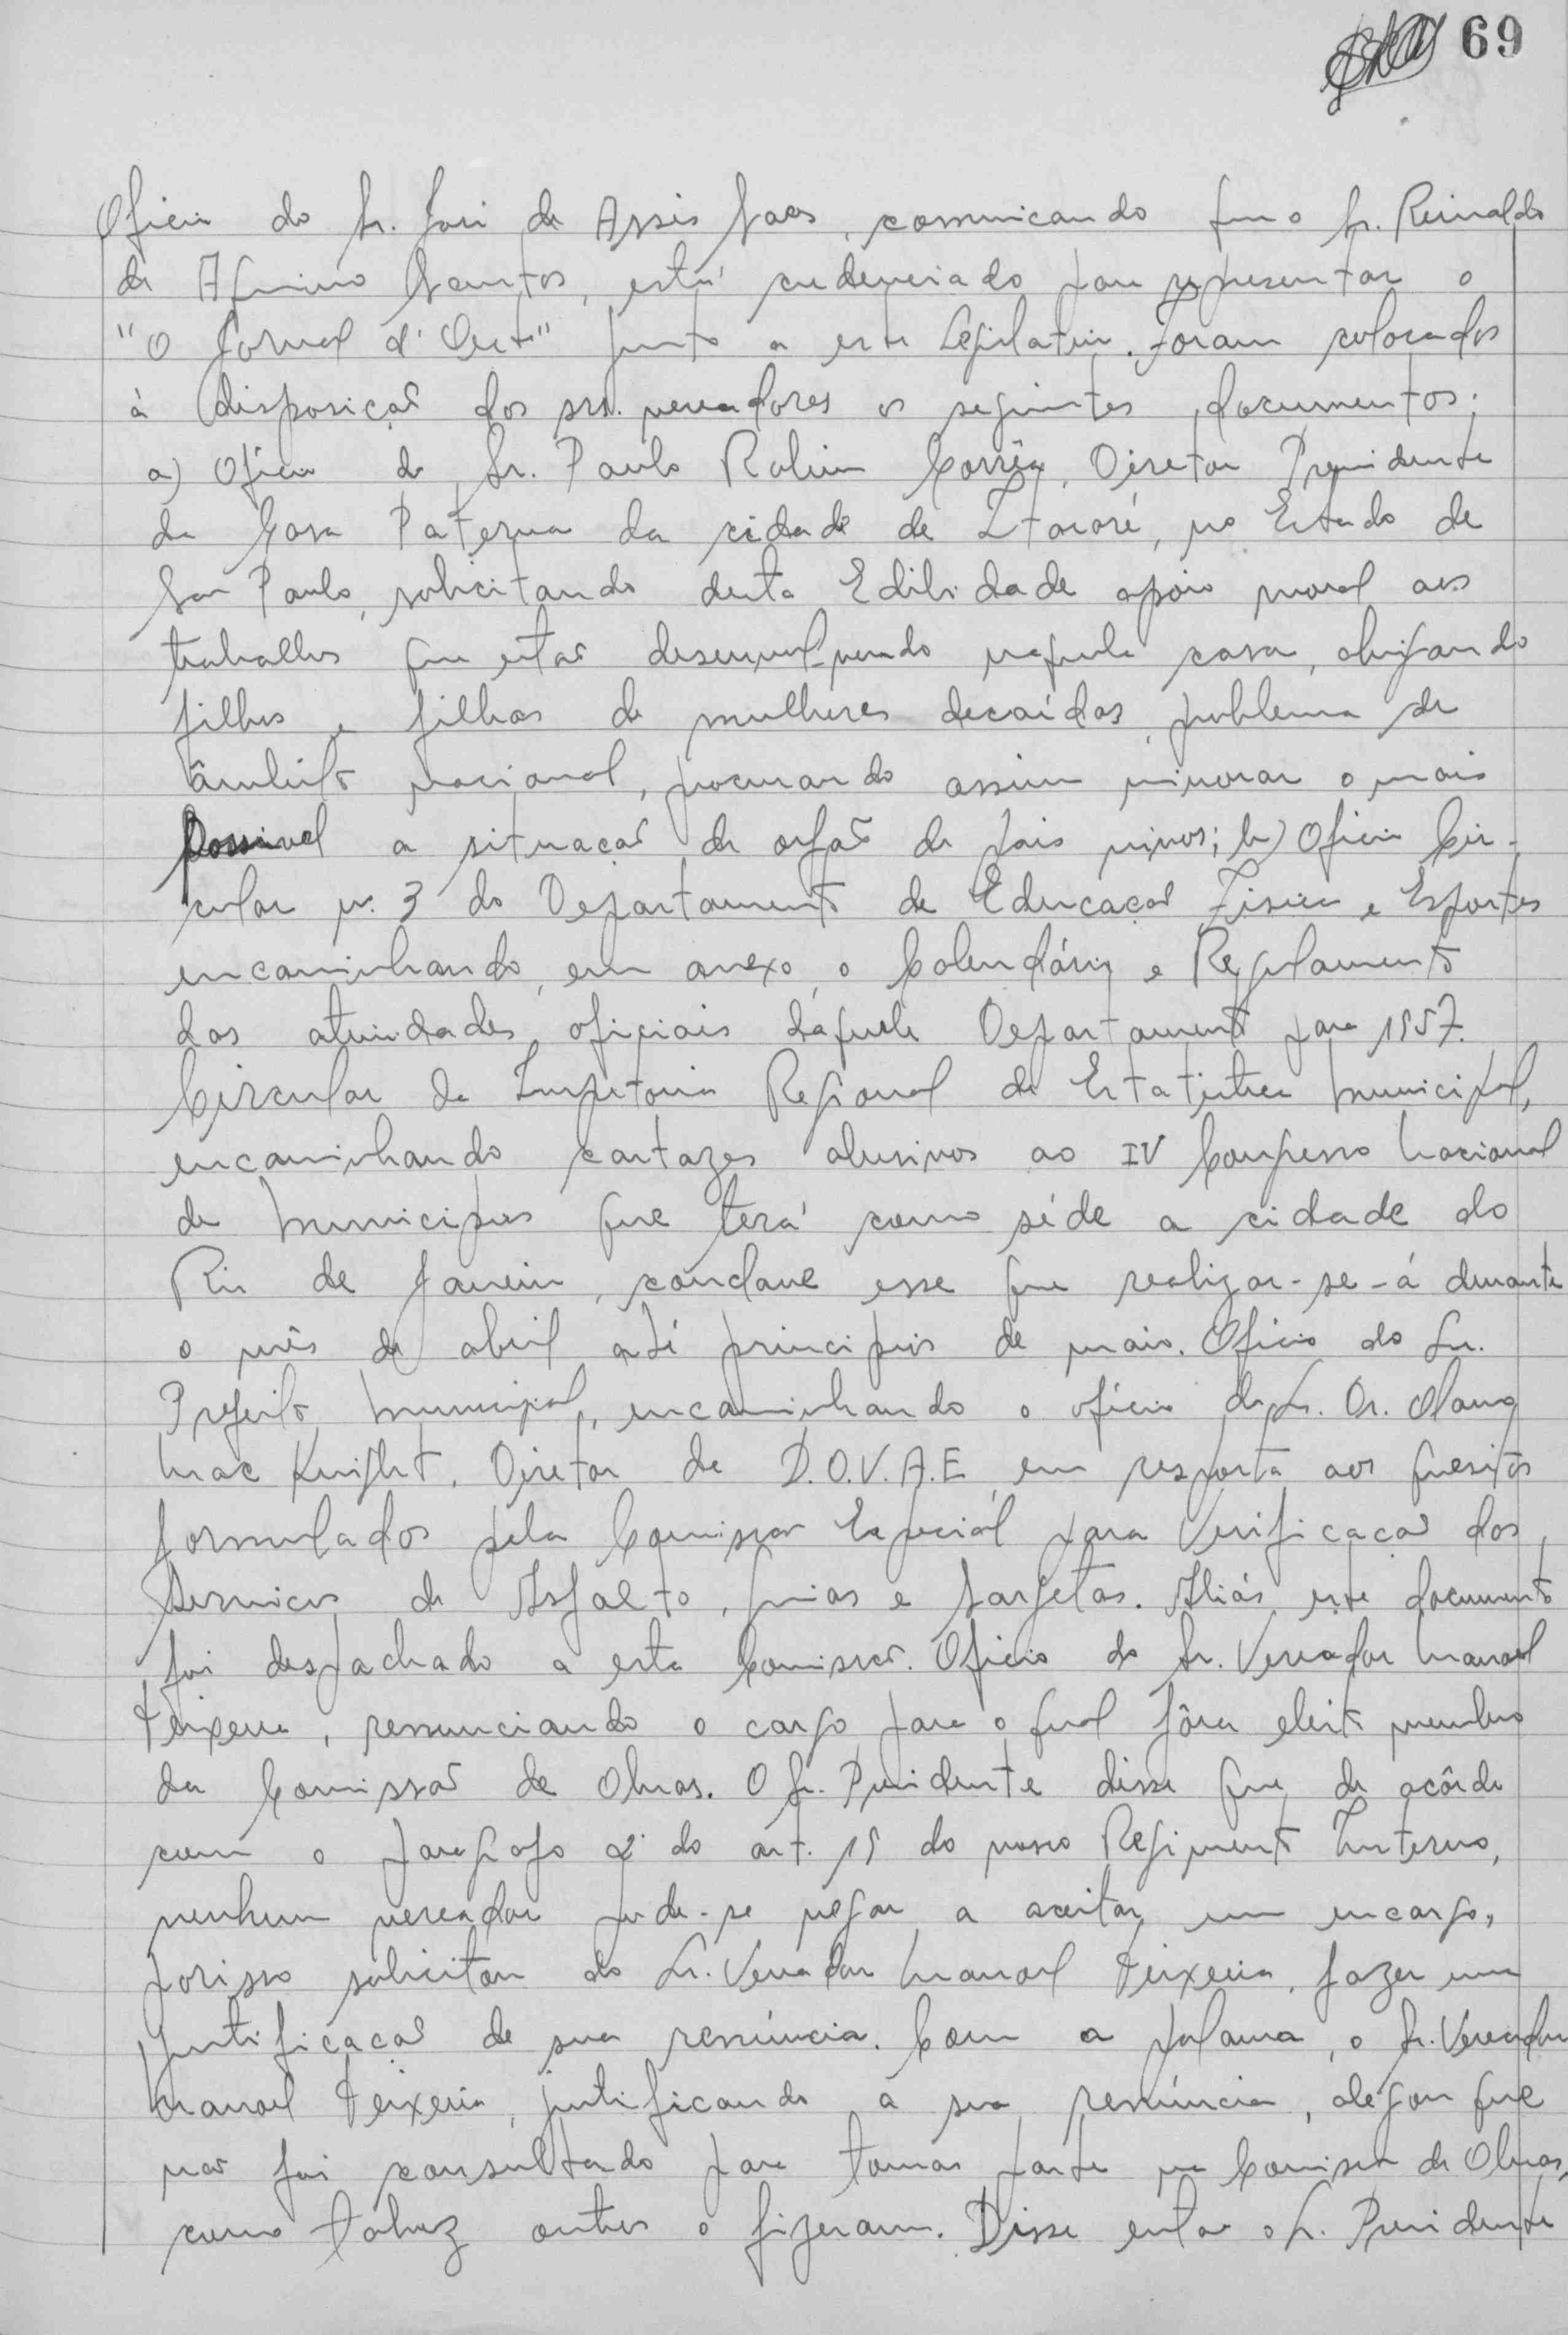 69
Oficio do Sr. José de Assis Saes, comunicando que o Sr. Reinaldo
de Aquino Santos, está credenciado para representar o
"O Jornal d'Oeste" junto a este Legislativo. Foram colocados
à disposição dos srs. vereadores os seguintes documentos:
a) Oficio do Sr. Paulo Rolim Corrêa, Diretor Presidente
da Casa Paterna da cidade de Itararé, no Estado de
São Paulo, solicitando desta Edilidade apoio moral aos
trabalhos que estão desenvolvendo naquela casa, abrigando
filhos e filhas de mulheres decaídas, problema de
âmbito nacional, procurando assim minorar o mais
possivel a situação de orfão de pais vivos; b) Oficio Cir-
cular n. 3 do Departamento de Educação Fisica e Esportes
encaminhando, em anexo, o Calendário e Regulamento
das atividades oficiais daquele Departamento para 1957.
Circular da Inspetoria Regional de Estatistica Municipal,
encaminhando cartazes alusivos ao IV Congresso Nacional
de Municipios que terá como séde a cidade do
Rio de Janeiro, conclave esse que realizar-se-á durante
o mês de abril até principios de maio. Oficio do Sr.
Prefeito Municipal, encaminhando o oficio do Sr. Dr. Olavo
Mac Knight, Diretor da D.O.V.A.E. em resposta aos quesitos
formulados pela Comissão Especial para Verificação dos
Serviços de Asfalto, guias e sargetas. Aliás, este documento
foi despachado a esta Comissão. Oficio do Sr. Vereador Manoel
Teixeira, renunciando o cargo para o qual fôra eleito membro
da Comissão de Obras. O Sr. Presidente disse que de acôrdo
com o paragrafo 2º do art. 19 do nosso Regimento Interno,
nenhum vereador pode-se negar a aceitar um encargo,
porisso solicitou do Sr. Vereador Manoel Teixeira, fazer uma
justificação de sua renúncia. Com a palavra, o Sr. Vereador
Manoel Teixeira, justificando a sua renúncia, alegou que
não foi consultado para tomar parte na Comissão de Obras,
como talvez outros o fizeram. Disse então o Sr. Presidente